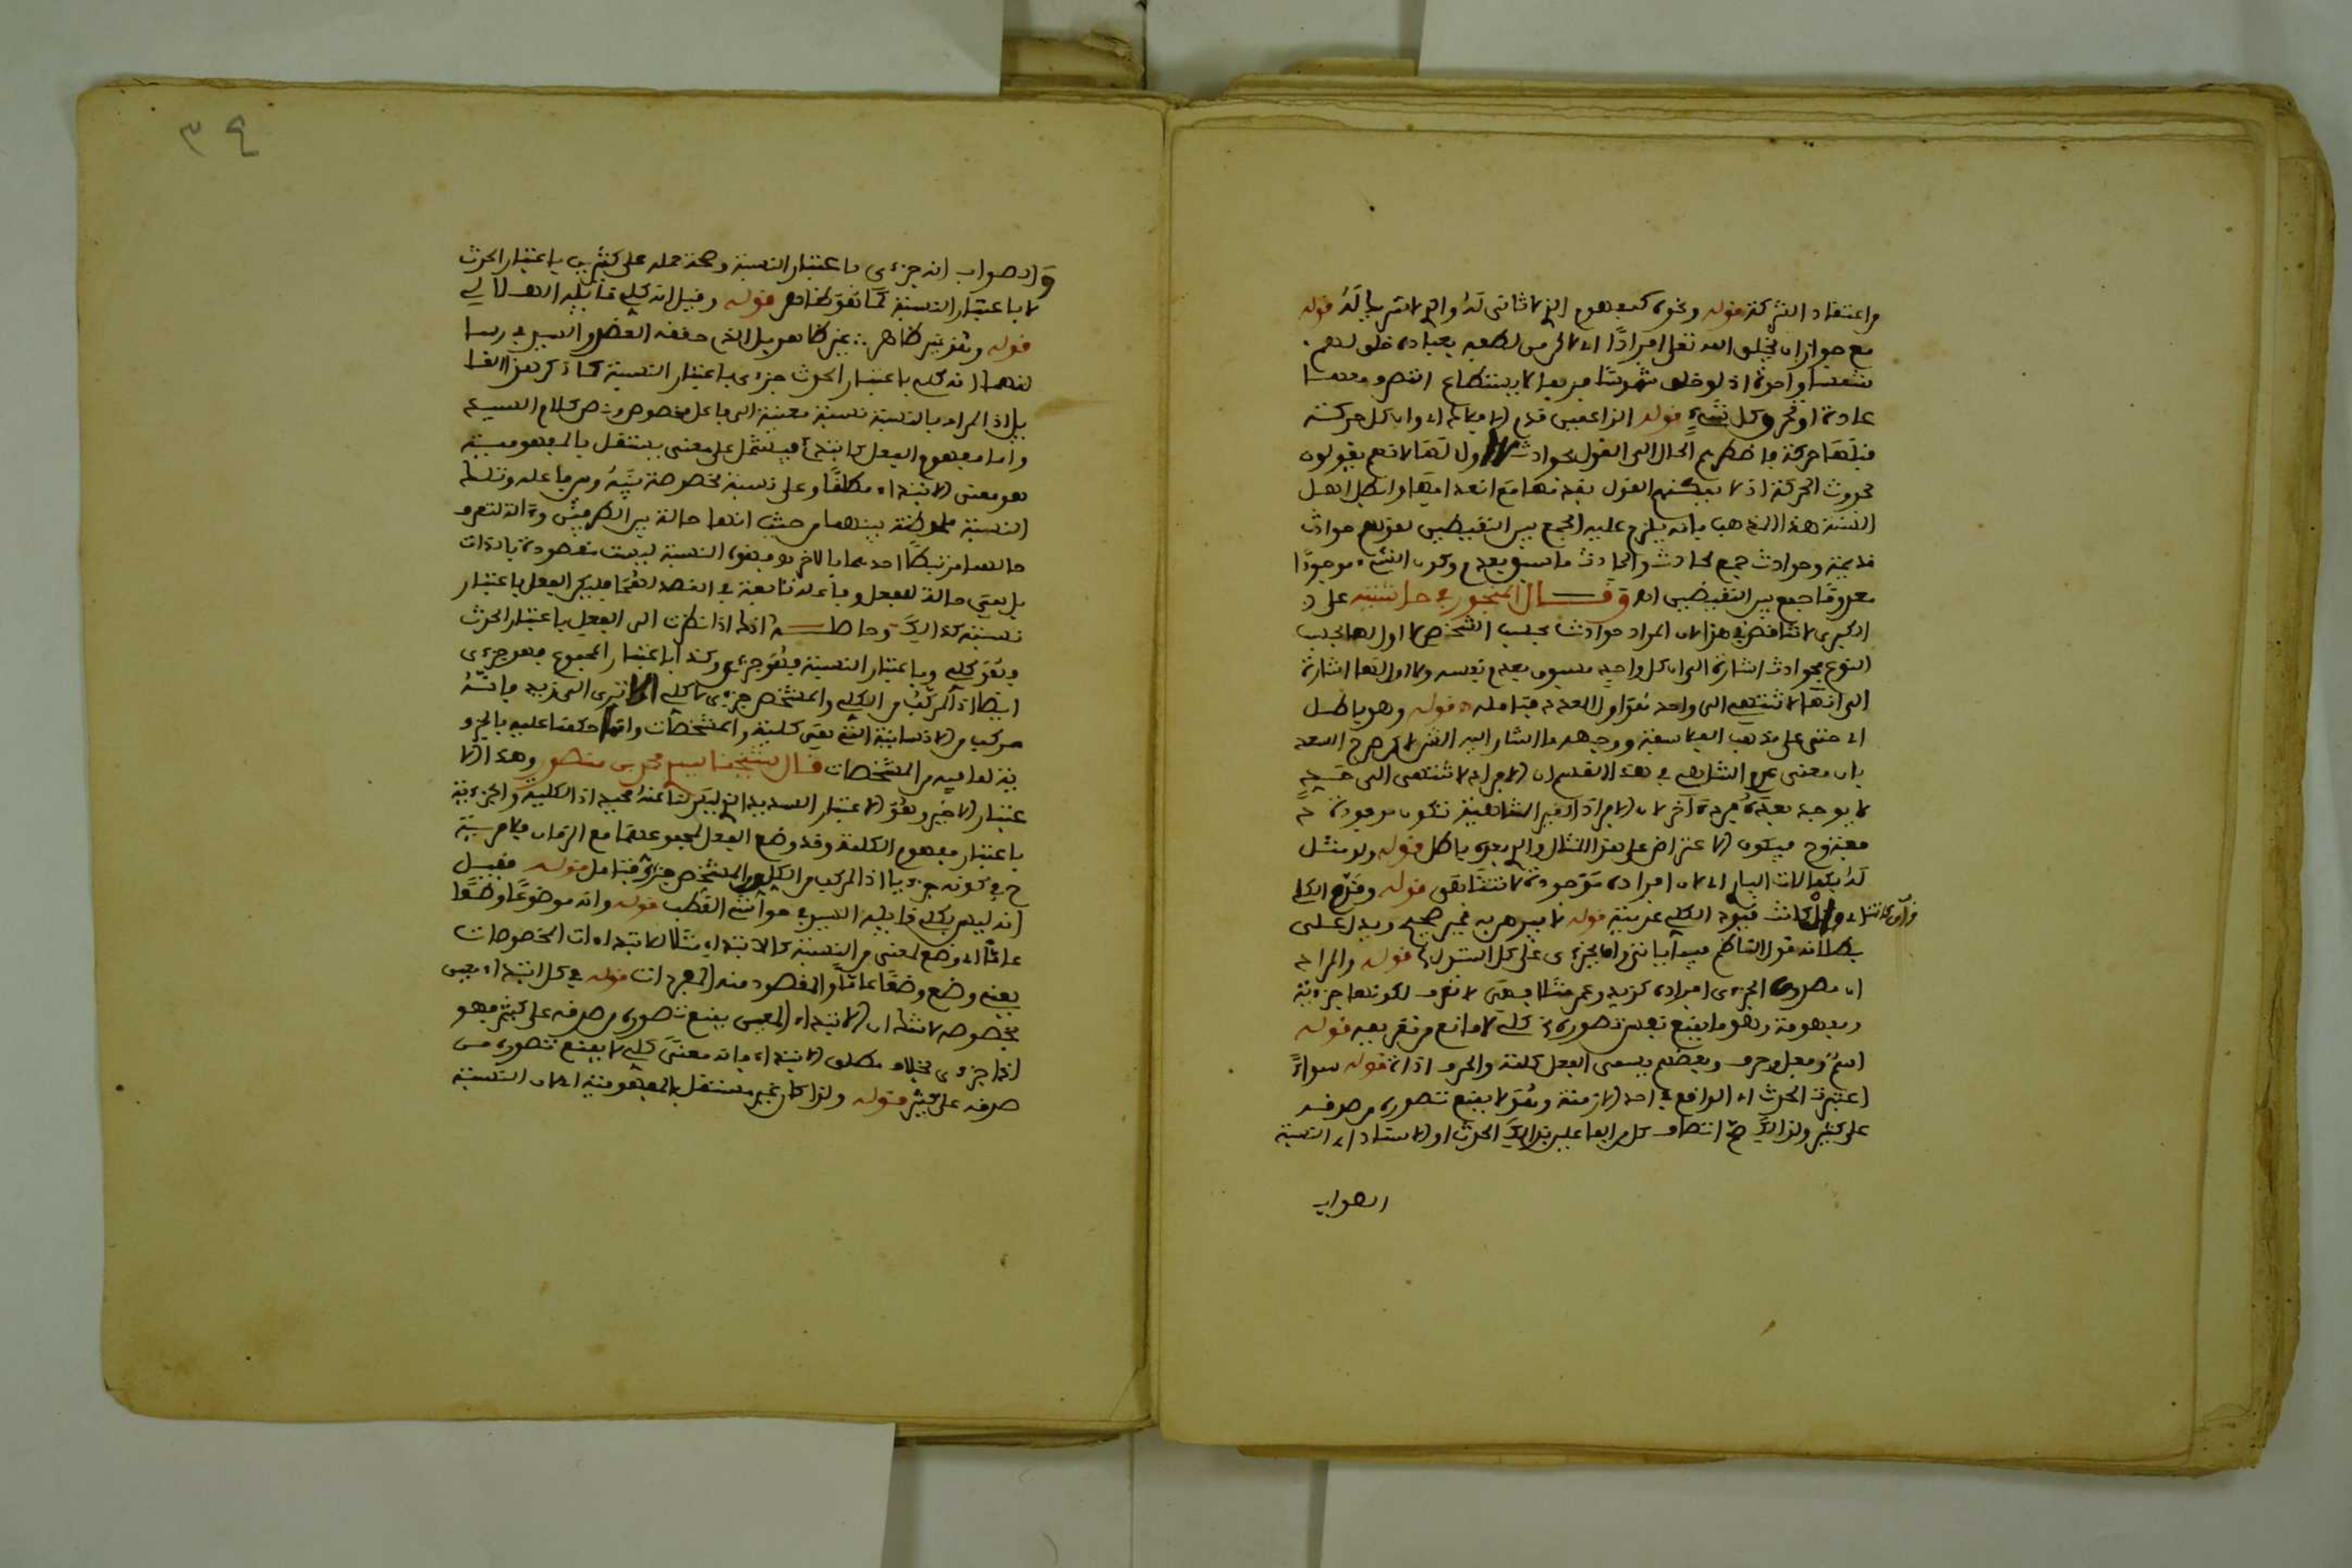 واعتقاد الشركة قوله ونحوه كمفهوم الذي لا ثاني له والذي لا شريك له قوله
مع جواز ان يخلق الله تعلى افرادا اي لاكن من لطفه بعباده خلق لهم
شمسا واحدة اذ لو خلق شموسا فربما لا يستطاع التصرف معها
عادة او تحرق كل شيء قوله الزاعمين قدم الافلاك اي وان كل حركة
قبلها حركة فاضطرهم الحال الى القول بحوادث لا اول لها لانهم يقولون
بحدوث الحركة اذ لا يمكنهم القول بقدمها مع انعدامها وابطل اهل
السنة هذا المذهب بانه يلزم عليه الجمع بين النقيضين لقولهم حوادث
قديمة وحوادث جمع لحادث والحادث ما سبق بعدم وكون الشيء موجودا
معدوما جمع بين النقيضين اه وقال المنجور في حاشيته على
الكبرى لا تناقض في هذا لان المراد حوادث بحسب الشخص لا اول لها بحسب
النوع فحوادث اشارة الى ان كل واحد مسبوق بعدم نفسه ولا اول لها اشارة
الى انها لا تنتهي الى واحد هو اول العدد فتامله قوله وهو باطل
اي حتى على مذهب الفلاسفة ووجهه ما اشار اليه الشرح لاكن صرح السعد
بان معنى عدم التناهي في هذا القسم ان الافراد لا تنتهي الى حد
لا يوجد بعده فرد آخر لا ان الافراد الغير المتناهية تكون موجودة
فيكون الاعتراض على هذا المثال والذي بعده باطل قوله ولو مثل
له بكمالات الباري اي لان افراده موجودة لا تتناهى قوله وقدم الكلي
اي وان كانت قيود الكلي عدمية قوله تاليه هو به غير صحيح ويدل على
بطلانه قول الناظم فيما ياتي واما بجزءي على كل استدل قوله والمراد
ان مصدوق الجزءي افراده كزيد وعمر مثلا فهي لا تعرف لكونها جزءية
ومفهومه وهو ما يمنع نفس تصوره كلي لا مانع من تعريفه قوله
اسم وفعل وحرف وبعضهم يسمي الفعل كلمة والحرف اداة قوله سواء
اعتبرت الحدث اي الواقع في احد الازمنة وهو لا يمنع تصوره من صدقه
على كثير ولذالك صح اتصاف كل من الفاعلين بذالك الحدث او الاسناد اي النسبة
الصواب
٣٤
والصواب انه جزءي باعتبار النسبة وصحة حمله على كثيرين باعتبار الحدث
لا باعتبار النسبة كما هو ظاهر قوله وقيل انه كلي قائله الهلالي
قوله وهو غير ظاهر غير ظاهر بل الذي حققه العضد والسيد
انه كلي باعتبار الحدث جزءي باعتبار النسبة كما ذكر هذا القا
بل اذ المراد بالنسبة نسبة معينة الى فاعل مخصوص ونص كلام السيد
واما مفهوم الفعل كابتدأ فيشتمل على معنى مستقل بالمفهومية
هو معنى الابتداء مطلقا وعلى نسبة مخصوصة بينه وبين فاعله وتلك
النسبة ملحوظة بينهما من حيث انها حالة بين الطرفين وءالة لتعرف
حالهما مرتبطا احدهما بالاخر فهذه النسبة ليست مقصودة بالذات
بل هي حالة للفعل وفاعله تابعة في القصد لهما فليكن الفعل باعتبار
نسبته كذالك وحاصله انك اذا نظرت الى الفعل باعتبار الحدث
فهو كلي وباعتبار النسبة فهو جزءي وكذا باعتبار المجموع فهو جزءي
ايضا اذ المركب من الكلي والمشخص جزءي لا كلي الا ترى الى زيد فانه
مركب من الانسانية التي هي كلية والمشخصات وانما حكمنا عليه بالجزء
ية لما فيه من المشخصات قال شيخنا محمد بن منصور وهذا الا
عتبار الاخير وهو الاعتبار السديد الذي ليس لنا عنه محيد اذ الكلية والجزءية
باعتبار مفهوم الكلمة وقد وضع الفعل لمجموعهما مع الزمان فلا مرية
ح في كونه جزءيا اذ المركب من الكلي والمشخص جزءي فتامل قوله فقيل
انه ليس بكلي قائله السيد في حواشي القطب قوله وانه موضوع وضعا
عاما اي وضع لمعنى من النسبة كالابتداء مثلا لابتداءات المخصوصات
يعني وضع وضعا عاما والمقصود منه المفردات قوله في كل ابتداء معين
بخصوصه لا شك ان الابتداء المعين يمنع تصوره من صدقه على كثير فهو
اذا جزءي بخلاف مطلق الابتداء فانه معنى كلي لا يمنع تصوره من
صدقه على كثير قوله ولذا كان غير مستقل بالمفهومية اي لان النسبة